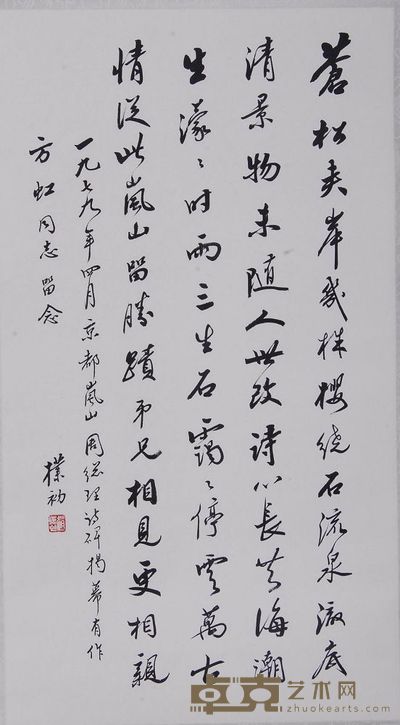 蒼松夹岸幾株櫻绕石流泉澈底
清景物未随人世改诗心長共海潮
生濛〻时雨三生石霭〻停雲萬古
情从此嵐山留勝蹟弟兄相見更相親
一九七九年四月京都嵐山周総理诗碑揭幕有作
方虹同志留念
樸初
卓克艺术网
zhuokearts.com